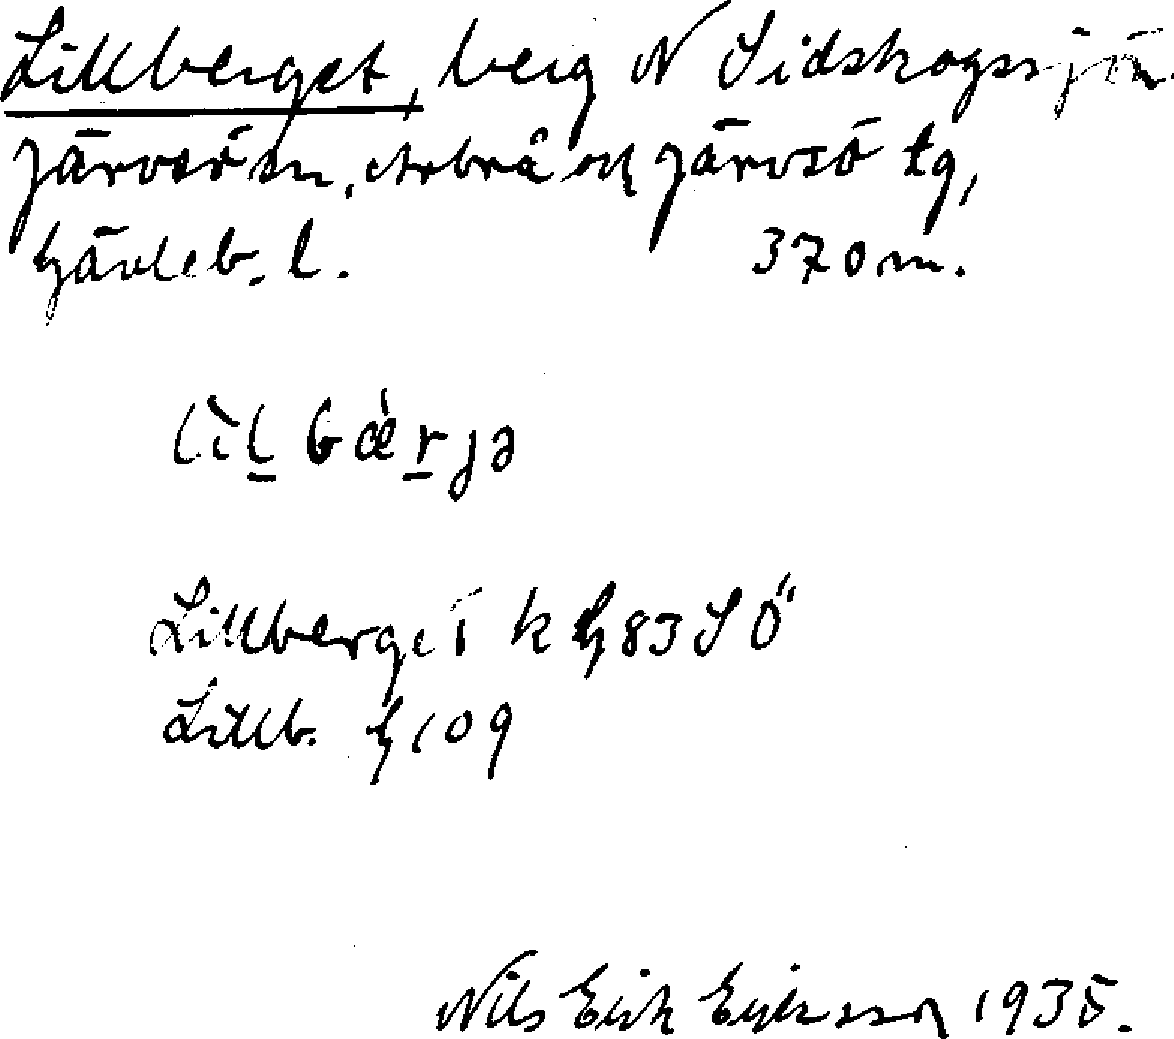 Lillberget, berg N Sidskogssjön
Järvsö sn, Arbrå och Järvsö tg,
Gävleb. l. 370 m.
lìl̠bæ̀r̠jə
Lillberget k G83SÖ
Lillb. G109
Nils Erik Eriksson 1935.